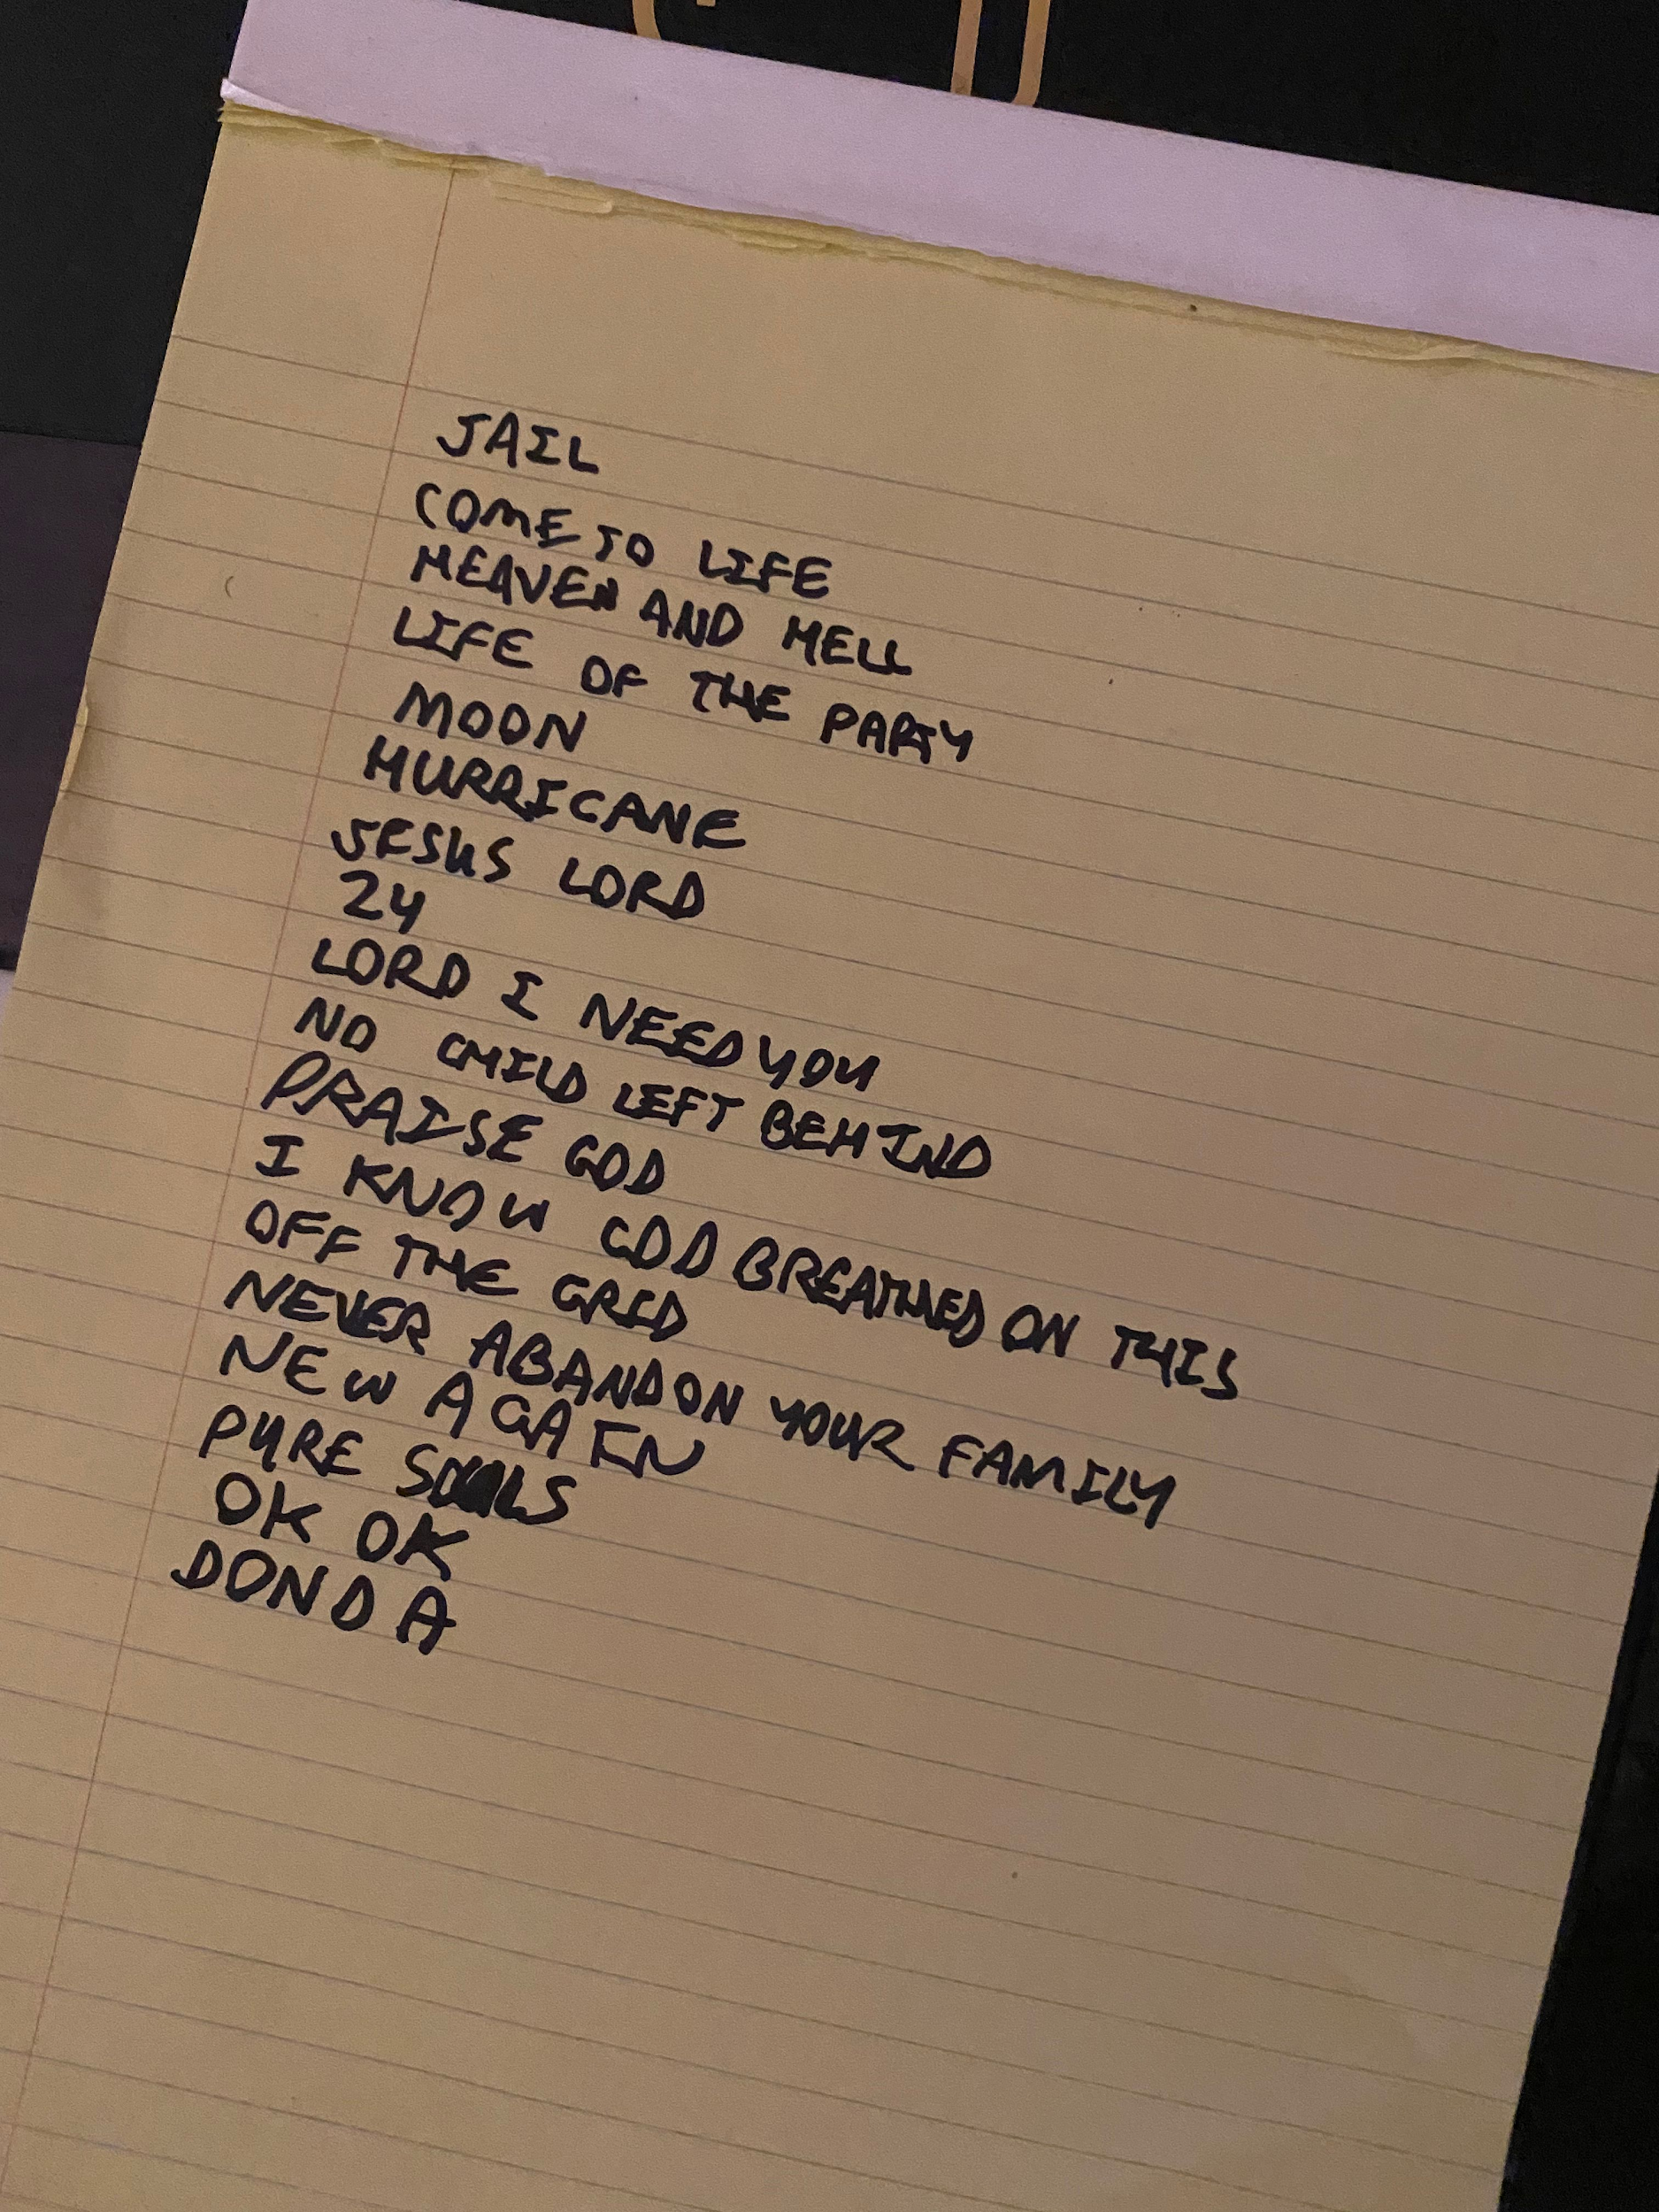 JAIL
COME TO LIFE
HEAVEN AND HELL
LIFE OF THE PARTY
MOON
HURRICANE
JESUS LORD
24
LORD I NEED YOU
NO CHILD LEFT BEHIND
PRAISE GOD
I KNOW GOD BREATHED ON THIS
OFF THE GRID
NEVER ABANDON YOUR FAMILY
NEW AGAIN
PURE SOULS
OK OK
DONDA